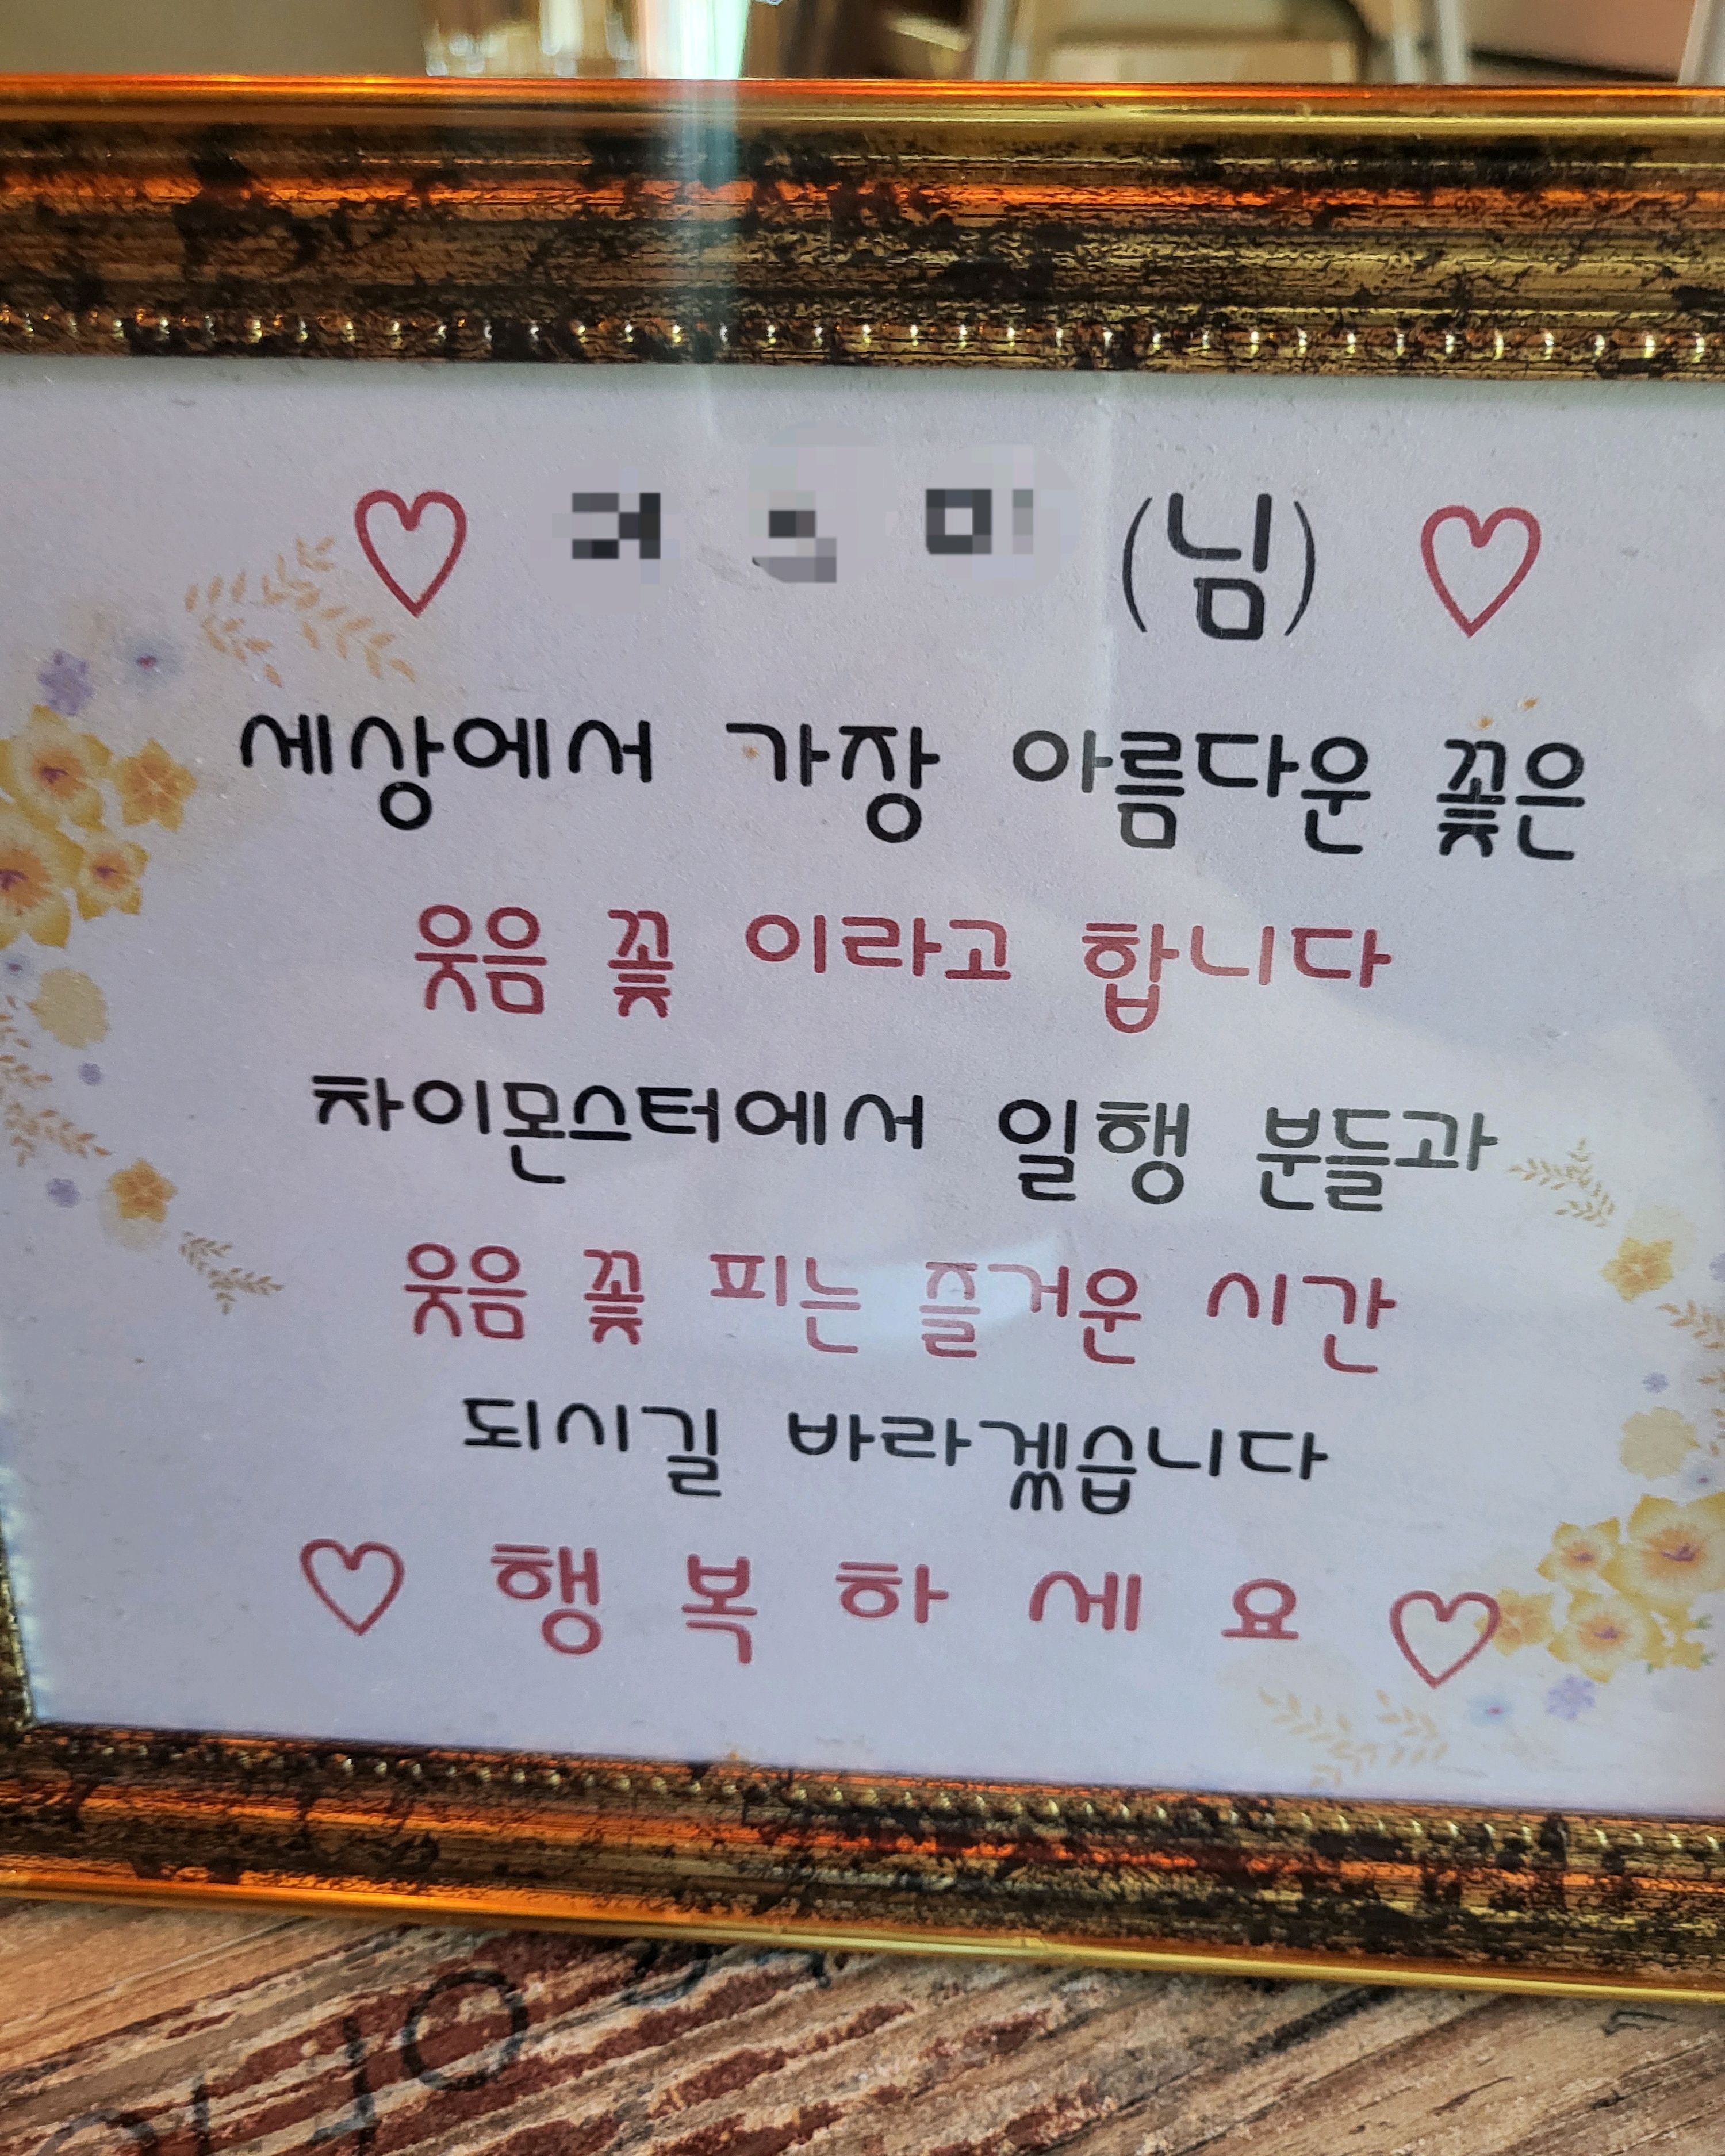 ♡ (님) ♡
세상에서 가장 아름다운 꽃은
웃음 꽃 이라고 합니다
차이몬스터에서 일행 분들과
웃음 꽃 피는 즐거운 시간
되시길 바라겠습니다
♡ 행 복 하 세 요 ♡